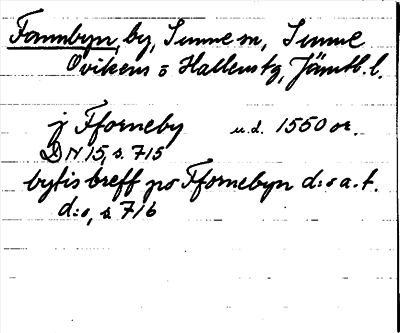 Fannbyn, by, Sunne sn, Sunne
Ovikens o Hallens tg, Jämtl. l.
j Fforneby u.d. 1550 or.
DN 15, s. 715
bytis breff po Ffornebyn d:o a. t.
d:o, s. 716